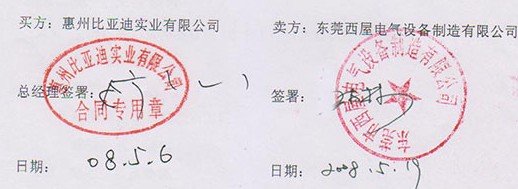 买方：惠州比亚迪实业有限公司
惠州比亚迪实业有限公司
合同专用章
总经理签署：
日期： 08.5.6
卖方：东莞西屋电气设备制造有限公司
东莞市西屋电气设备制造有限公司
签署：
日期： 2008.5.19